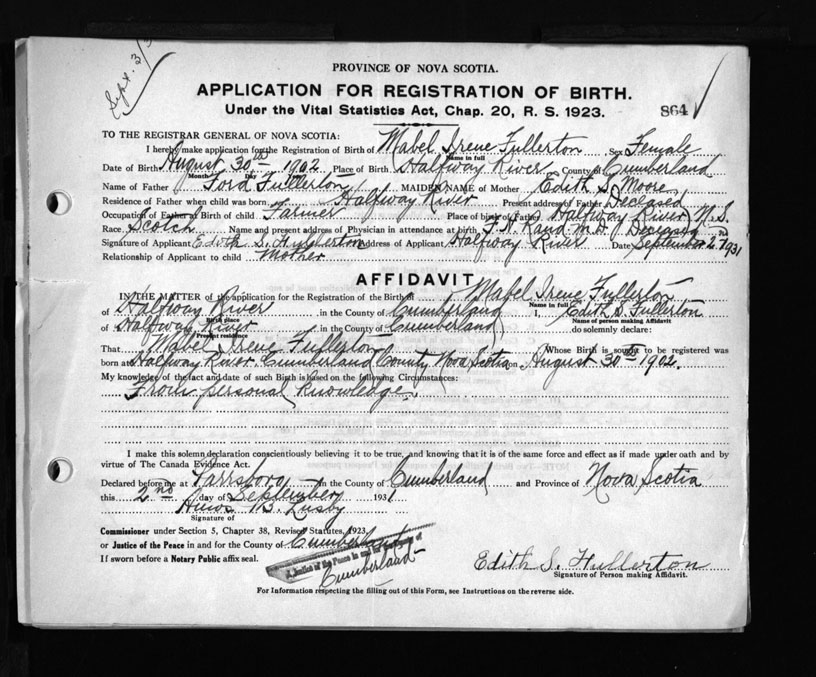 Sept. 3/3
PROVINCE OF NOVA SCOTIA.
APPLICATION FOR REGISTRATION OF BIRTH.
Under the Vital Statistics Act, Chap. 20, R. S. 1923.
864
TO THE REGISTRAR GENERAL OF NOVA SCOTIA:
I hereby make application for the Registration of Birth of Mabel Irene Fullerton Sex Female
Name in full
Date of Birth August 30th 1902 Place of Birth Halfway River County of Cumberland
Month Day Year
Name of Father Ford Fullerton MAIDEN NAME of Mother Edith S. Moore
Residence of Father when child was born Halfway River Present address of Father Deceased
Occupation of Father at Birth of child. Farmer Place of birth of Father Halfway River N.S.
Race Scotch Name and present address of Physician in attendance at birth F. A. Rand M.D. Deceased
Signature of Applicant Edith S. Fullerton Address of Applicant Halfway River Date September 2nd 1931
Relationship of Applicant to child Mother
AFFIDAVIT
IN THE MATTER of the application for the Registration of the Birth of Mabel Irene Fullerton
Name in full
of Halfway River in the County of Cumberland I, Edith S. Fullerton
Birth place Name of person making Affidavit
of Halfway River in the County of Cumberland do solemnly declare:
Present residence
That Mabel Irene Fullerton Whose Birth is sought to be registered was
born at Halfway River Cumberland County Nova Scotia on August 30th 1902.
My knowledge of the fact and date of such Birth is based on the following Circumstances:
From personal knowledge.
I make this solemn declaration conscientiously believing it to be true, and knowing that it is of the same force and effect as if made under oath and by
virtue of The Canada Evidence Act.
Declared before me at Parrsboro in the County of Cumberland and Province of Nova Scotia
this 2nd day of September 1931
Amos B. Lusby
Signature of
Commissioner under Section 5, Chapter 38, Revised Statutes, 1923.
or Justice of the Peace in and for the County of Cumberland
If sworn before a Notary Public affix seal.
A Justice of the Peace in and for the County of
Cumberland
Edith S. Fullerton
Signature of Person making Affidavit.
For Information respecting the filling out of this Form, see Instructions on the reverse side.